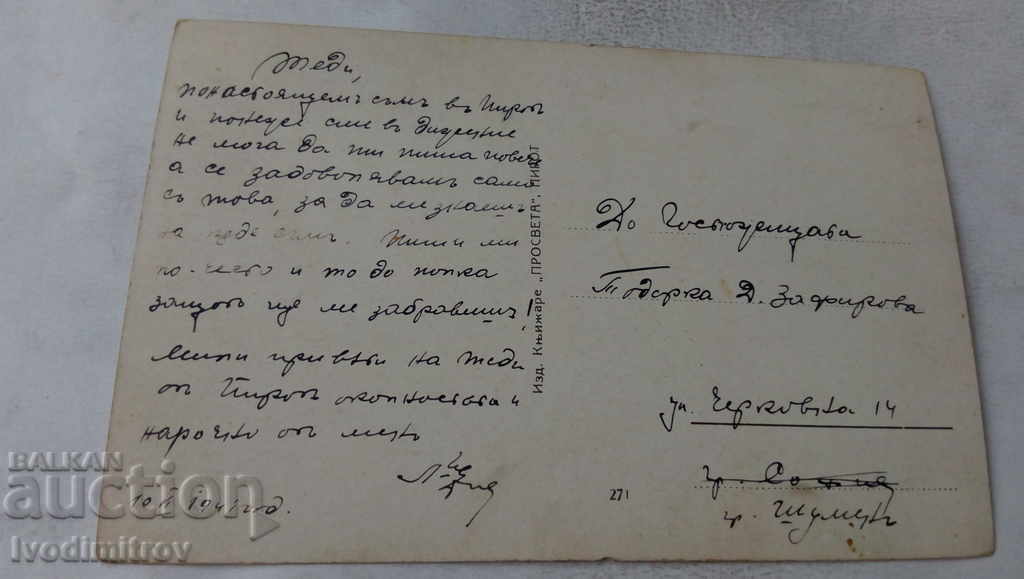 Теди,
понастоящемъ съмъ въ Пиротъ
и понеже сме в
не мога да ти пиша повече
а се задоволявамъ само
съ това, за да ме знаешъ
че съмъ. Пиши ми
по-често и то до
защото ще ме забравишъ!
Мили привети на Теди
отъ Пиротъ околностьта и
нарочно отъ менъ
10.
Изд. Књижаре „ПРОСВЕТА“. ПИРОТ
271
До Госпожицата
Тодорка Д. Зафирова
ул. Черковна 14
гр. София
гр. Шуменъ
BALKAN
auction
Ivodimitrov